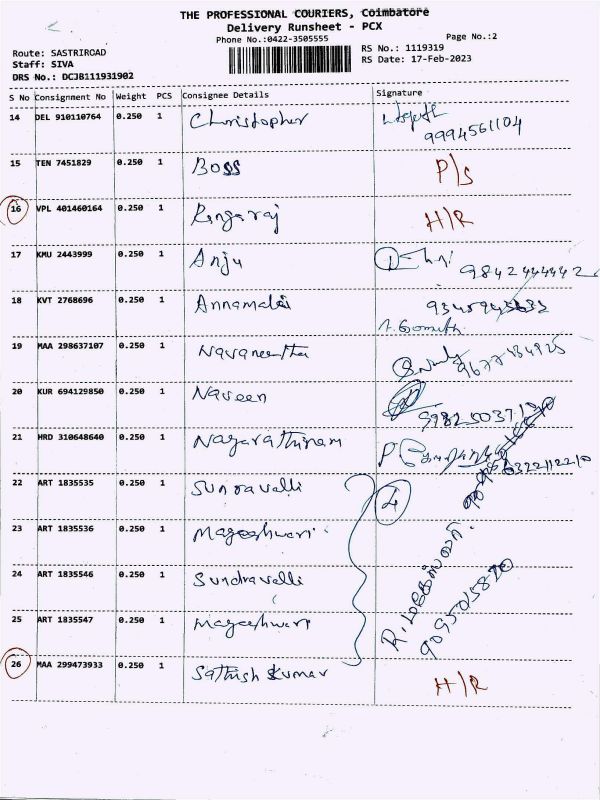 THE PROFESSIONAL COURIERS, Coimbatore
Delivery Runsheet - PCX
Phone No.:0422-3505555
Page No.:2
Route: SASTRIROAD
RS No.: 1119319
Staff: SIVA
RS Date: 17-Feb-2023
DRS No.: DCJB111931902
S No Consignment No Weight PCS Consignee Details Signature
14 DEL 910110764 0.250 1 Christopher
9994561104
15 TEN 7451829 0.250 1 Boss P/S
16 VPL 401460164 0.250 1 Rengaraj H/R
17 KMU 2443999 0.250 1 Anju
9842444442
18 KVT 2768696 0.250 1 Annamalai
19 MAA 298637107 0.250 1 Navaneetha
9677434925
20 KUR 694129850 0.250 1 Naveen
21 HRD 310648640 0.250 1 Nagarathinam
22 ART 1835535 0.250 1 Sundravalli 4
23 ART 1835536 0.250 1 Mageshwari
24 ART 1835546 0.250 1 Sundravalli
25 ART 1835547 0.250 1 Mageshwari
R. மகேஸ்வரி
26 MAA 299473933 0.250 1 Sathish Kumar H/R